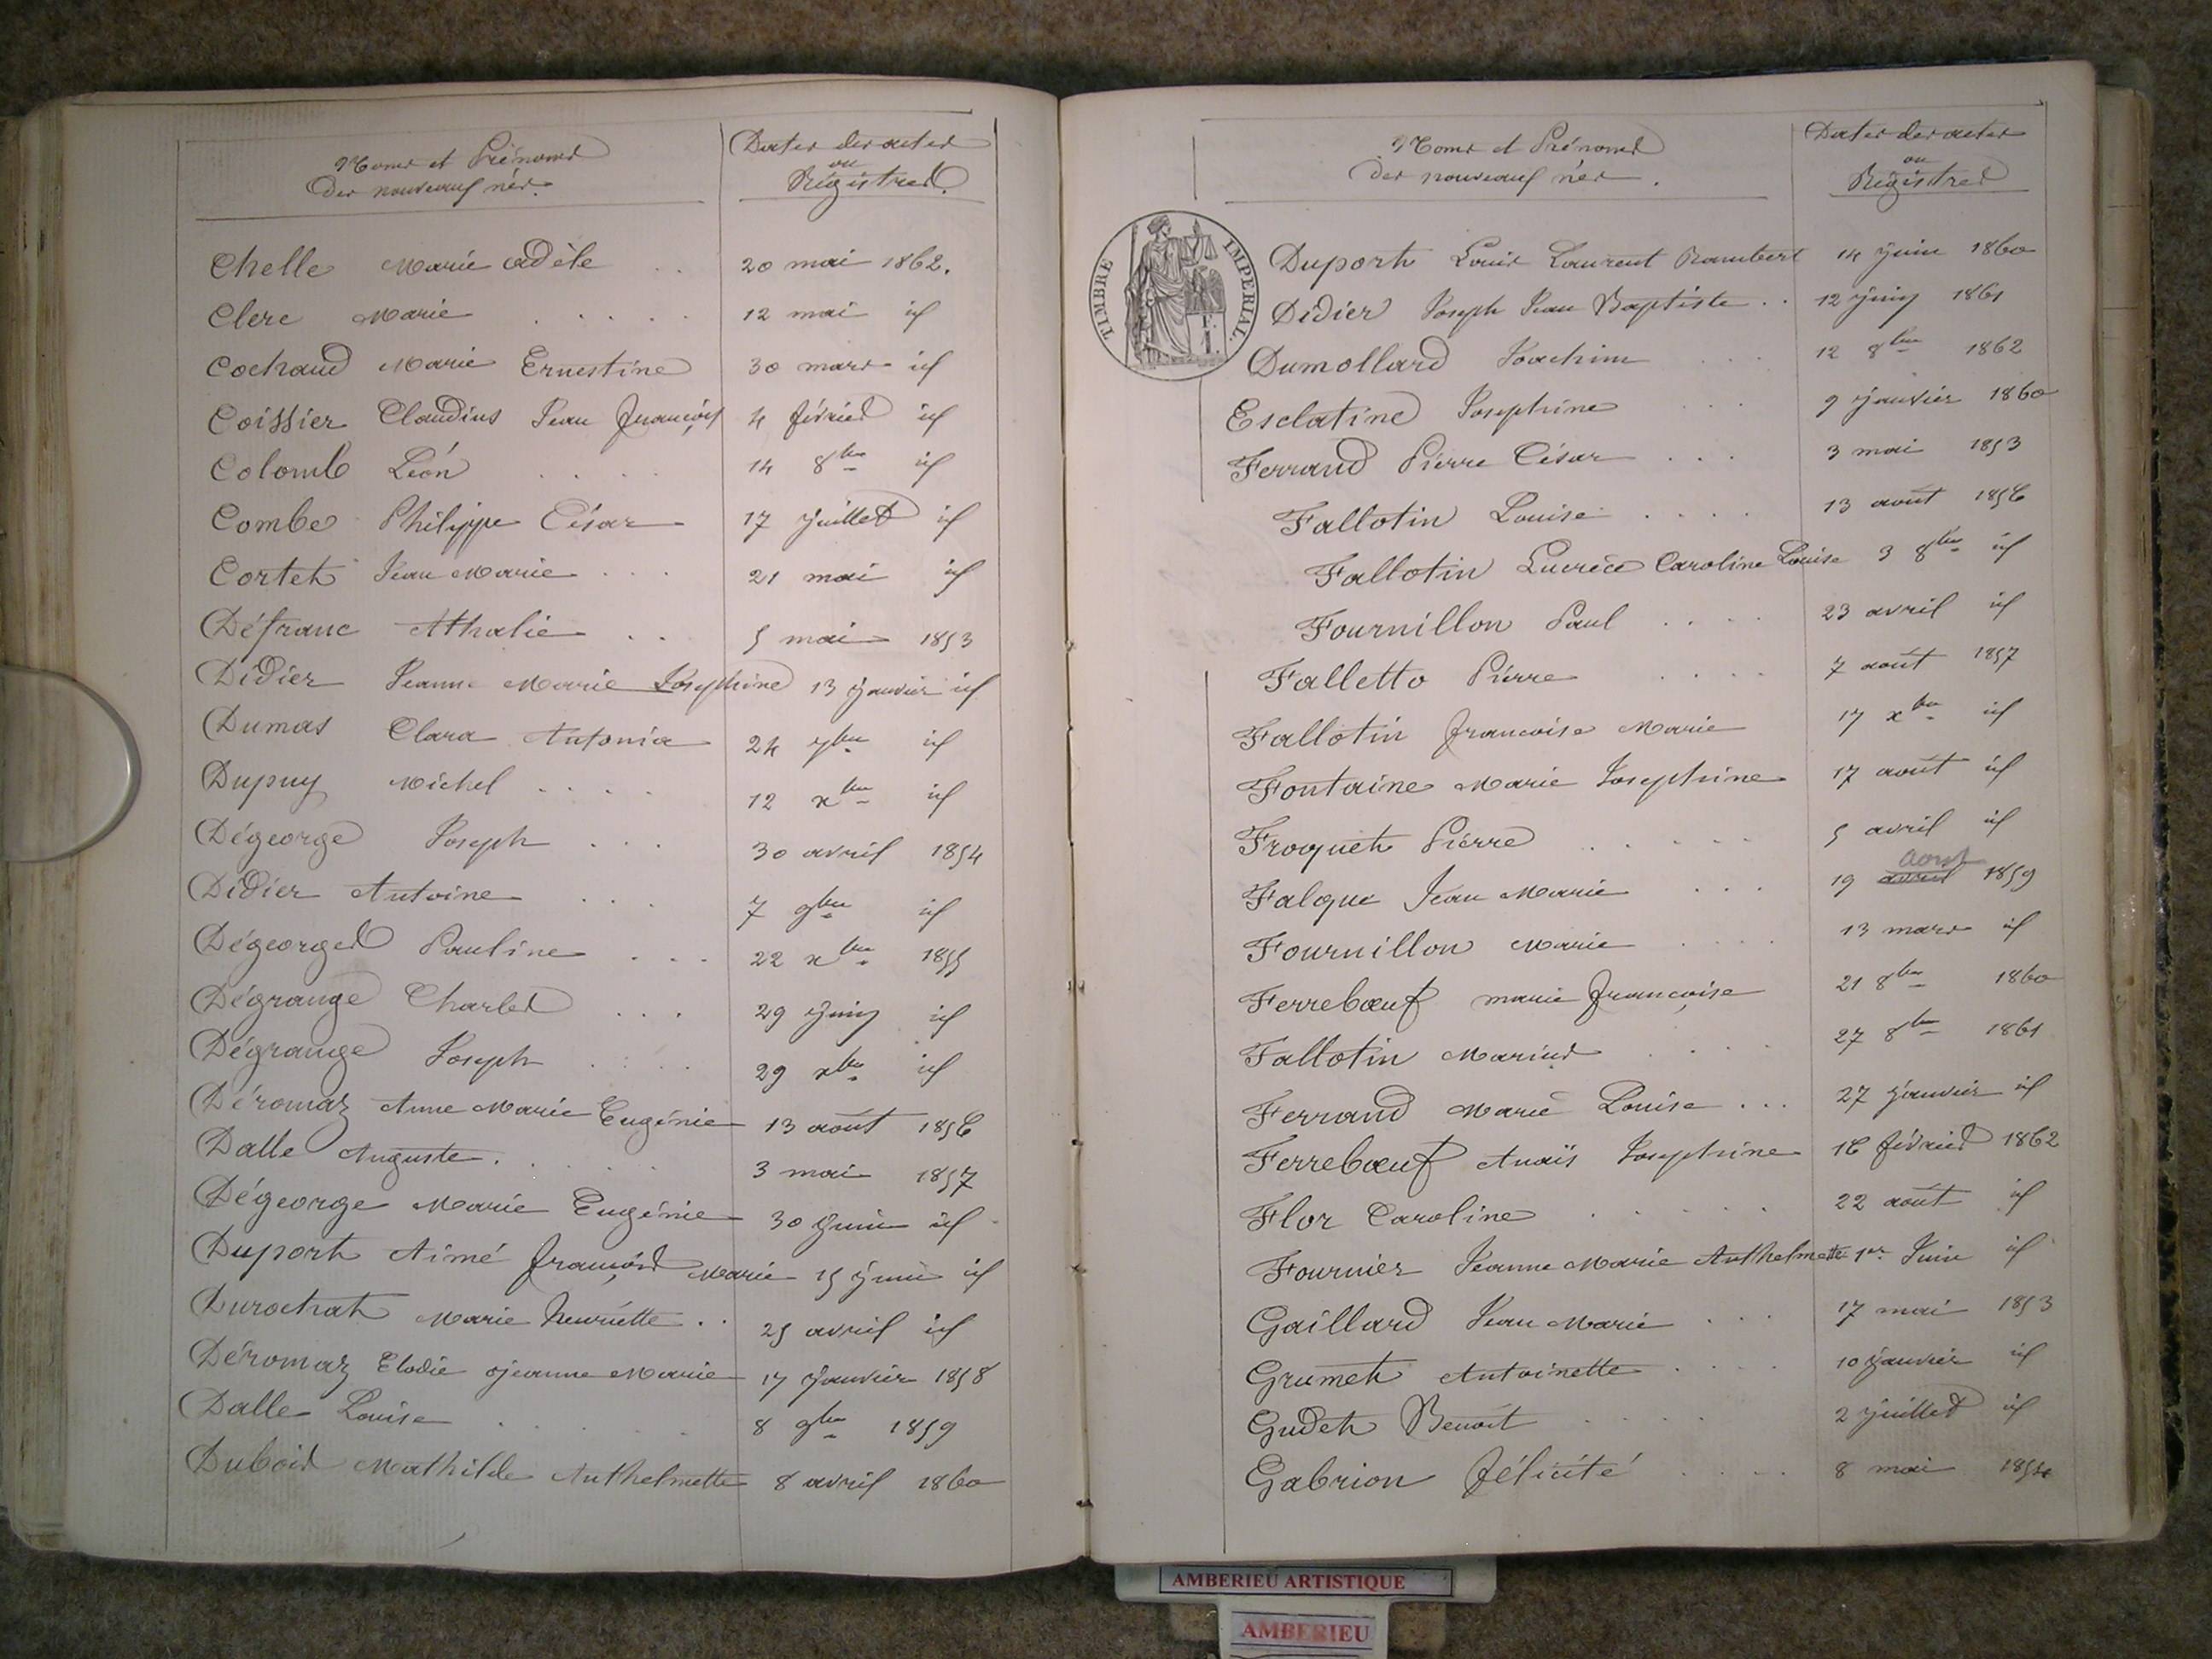 Noms et Prénoms
Des nouveaux nés.
Dates des actes
ou
Régistres.
Chelle Marie Adèle . . 20 mai 1862.
Clerc Marie . . . . . 12 mai id
Cochaud Marie Ernestine 30 mars id
Coissier Claudius Jean François 4 février id
Colomb Léon . . . . 14 8bre id
Combe Philippe César 17 juillet id
Cortet Jean Marie . . . 21 mai id
Défranc Athalie . . 5 mai 1853
Didier Jeanne Marie Josephine 13 janvier id
Dumas Clara Antonia 24 7bre id
Dupuy Michel . . . . 12 xbre id
Dégeorge Joseph . . . 30 avril 1854
Didier Antoine . . . 7 9bre id
Dégeorges Pauline . . . 22 xbre 1855
Dégrange Charles . . . 29 Juin id
Dégrange Joseph . . . . 29 xbre id
Déromaz Anne Marie Eugénie 13 août 1856
Dalle Auguste . . . . . 3 mai 1857
Dégeorge Marie Eugénie 30 Juin id
Duport Aimé François Marie 15 Juin id
Durochat Marie henriette . . 25 avril id
Déromaz Elodie Jeanne Marie 17 Janvier 1858
Dalle Louise . . . . . 8 9bre 1859
Dubois Mathilde Anthelmette 8 avril 1860
Noms et Prénoms
Des nouveaux nés.
Dates des actes
ou
Régistres
TIMBRE IMPERIAL.
Duport Louis Laurent Rambert 14 Juin 1860
Didier Joseph Jean Baptiste . . 12 Juin 1861
Dumollard Joachim . . . 12 8bre 1862
Esclatine Josephine . . . 9 Janvier 1860
Ferrand Pierre César . . . 3 mai 1853
Fallotin Louise . . . . 13 août 1856
Fallotin Lucrèce Caroline Louise 3 8bre id
Fournillon Paul . . . . 23 avril id
Falletto Pierre . . . . 7 août 1857
Fallotin Francoise Marie 17 xbre id
Fontaine Marie Josephine 17 août id
Froquet Pierre . . . . . 5 avril id
Falque Jean Marie . . . 19 avril aout 1859
Fournillon Marie . . . . 13 mars id
Ferrebœuf marie Françoise 21 8bre 1860
Fallotin Marius . . . . 27 8bre 1861
Ferrand Marie Louise . . . 27 janvier id
Ferrebœuf Anaïs Josephine 16 février 1862
Flor Caroline . . . . . 22 août id
Fournier Jeanne Marie Anthelmette 1er Juin id
Gaillard Jean Marie . . . 17 mai 1853
Grumet Antoinette . . . . 10 Janvier id
Gudet Benoît . . . . 2 juillet id
Gabrion Félicité . . . . 8 mai 1854
AMBERIEU ARTISTIQUE
AMBERIEU